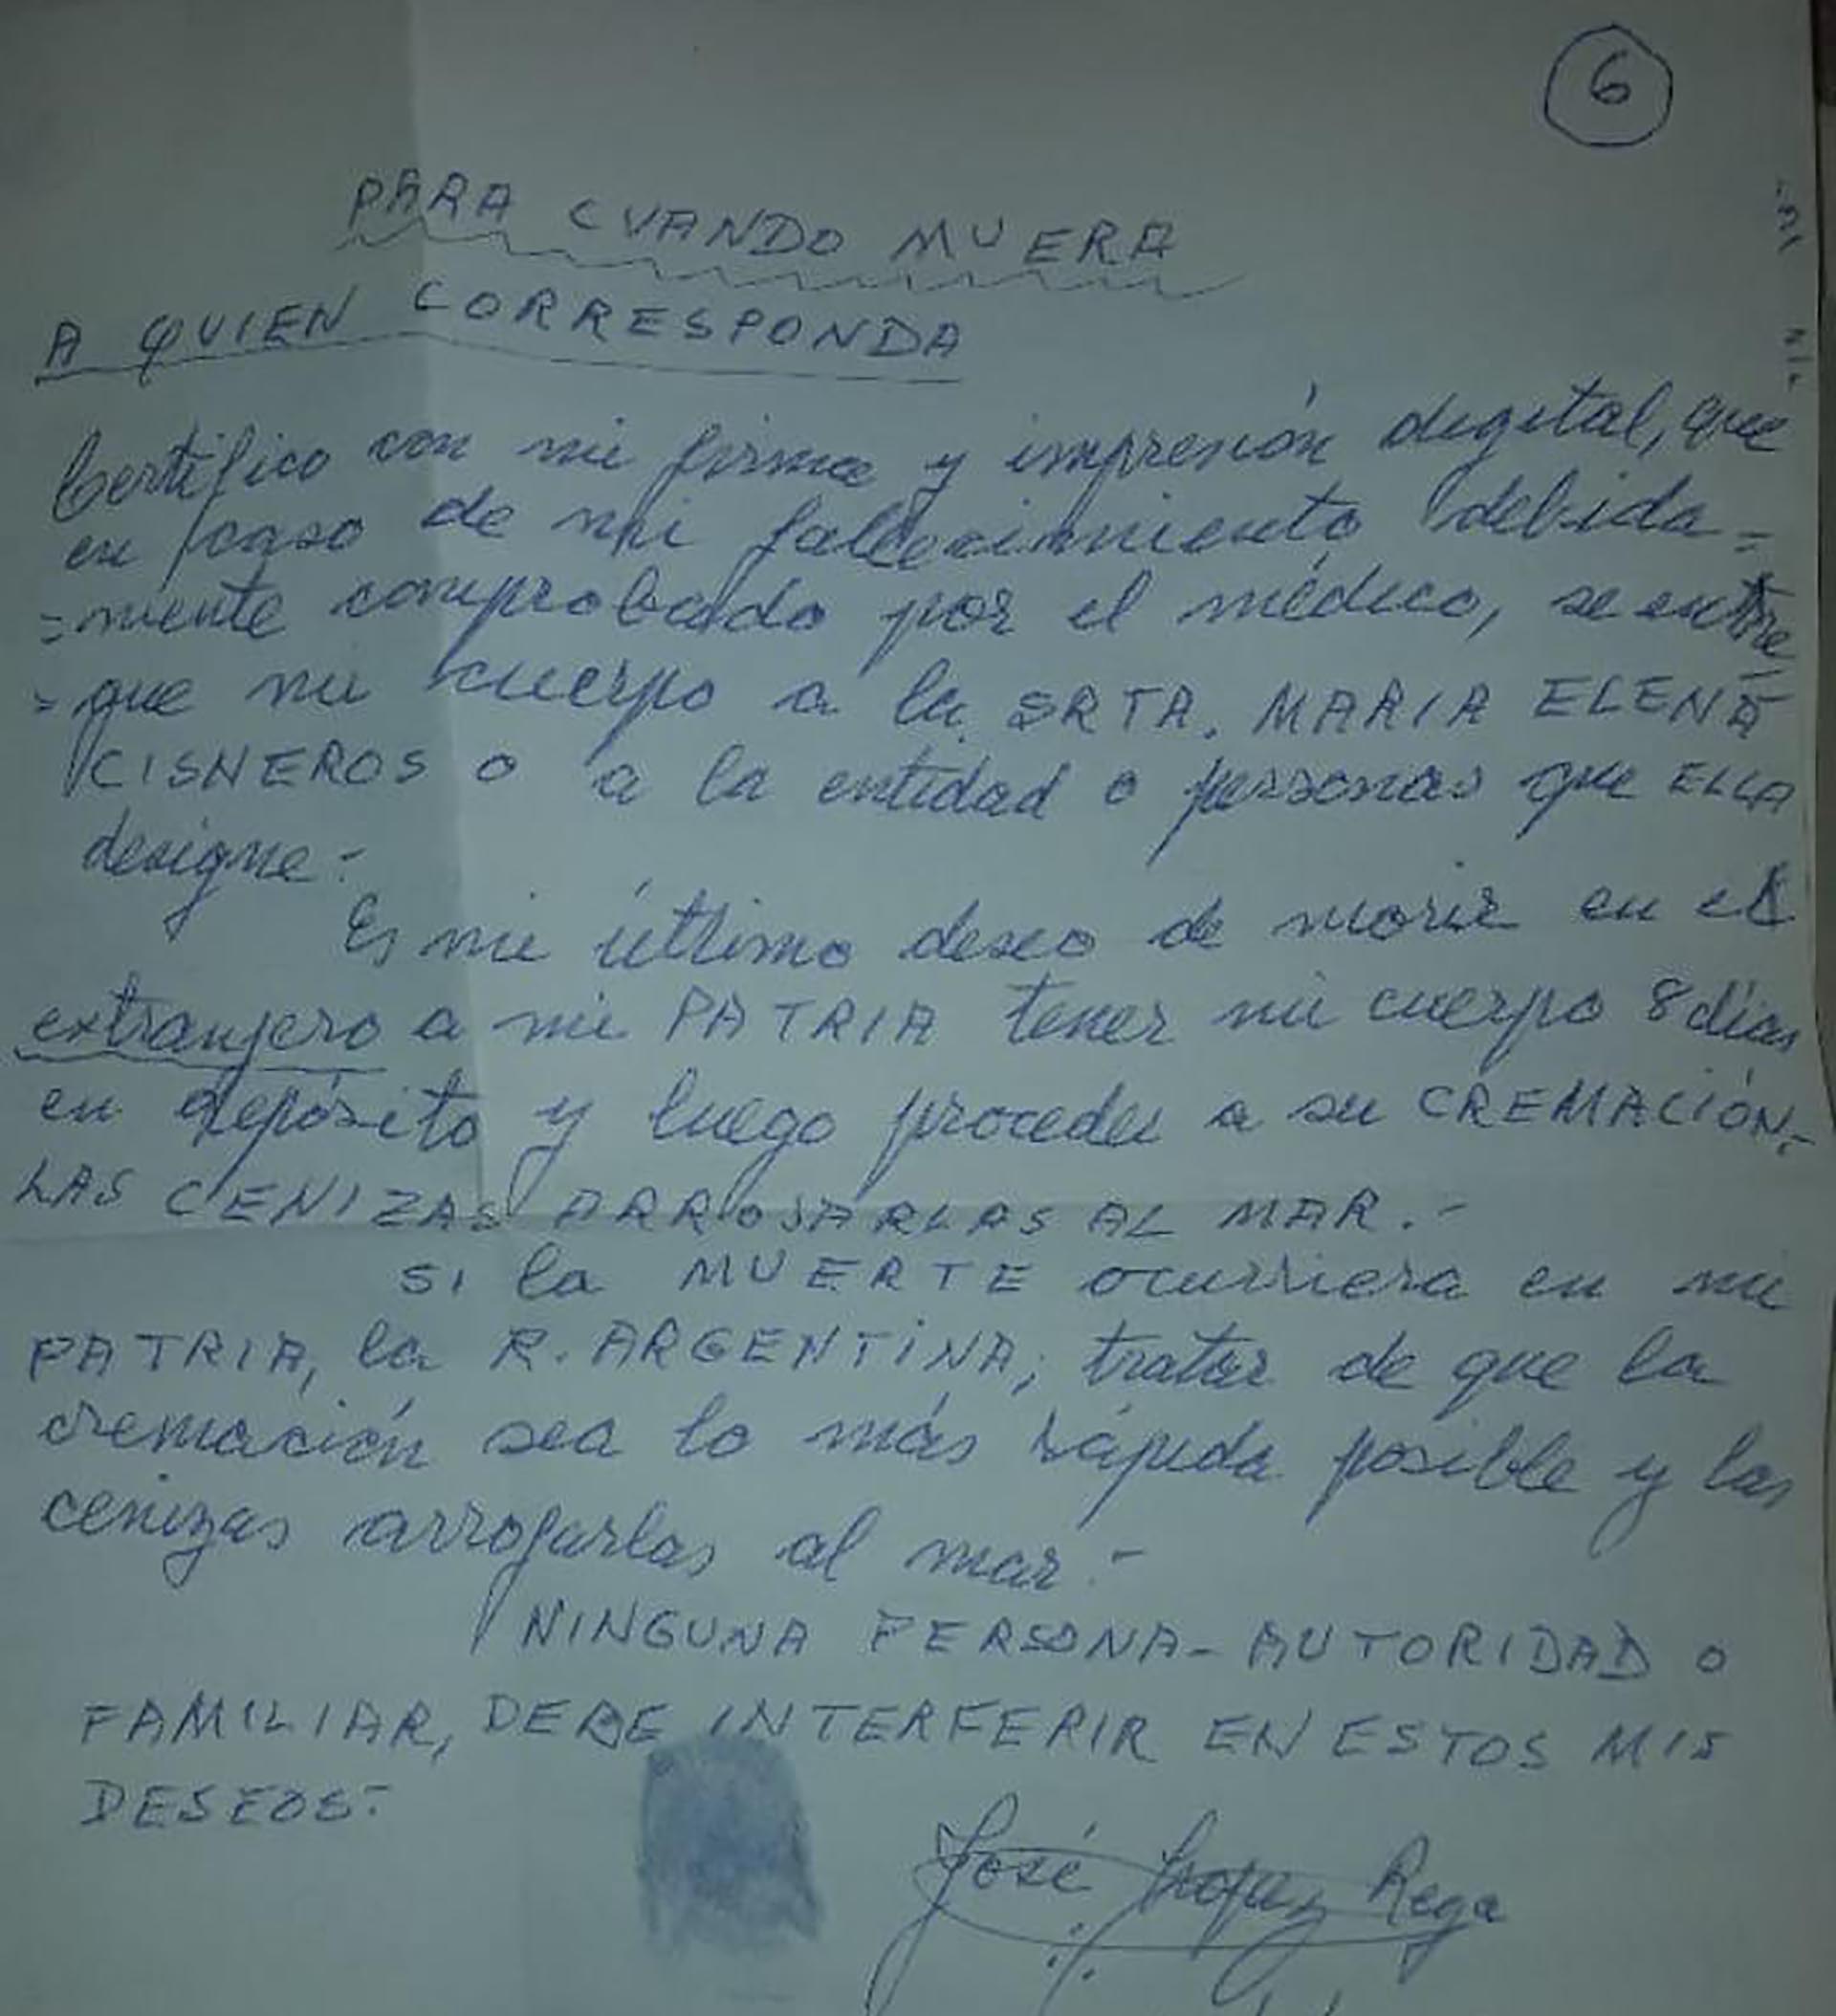 6
PARA CUANDO MUERA
A QUIEN CORRESPONDA
Certifico con mi firma y impresión digital, que
en caso de mi fallecimiento debida=
=mente comprobado por el médico, se entre
=que mi cuerpo a la SRTA. MARIA ELENA
CISNEROS o a la entidad o personas que ELLA
designe.-
Es mi último deseo de morir en el
extranjero a mi PATRIA tener mi cuerpo 8 días
en depósito y luego proceder a su CREMACIÓN.-
LAS CENIZAS ARROJARLAS AL MAR.-
SI la MUERTE ocurriera en mi
PATRIA, la R. ARGENTINA; tratar de que la
cremación sea lo más rápida posible y las
cenizas arrojarlas al mar.-
NINGUNA PERSONA-AUTORIDAD O
FAMILIAR, DEBE INTERFERIR EN ESTOS MIS
DESEOS.-
José López Rega